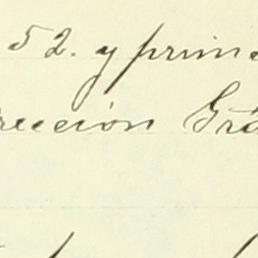 52. y prime
rección Grá